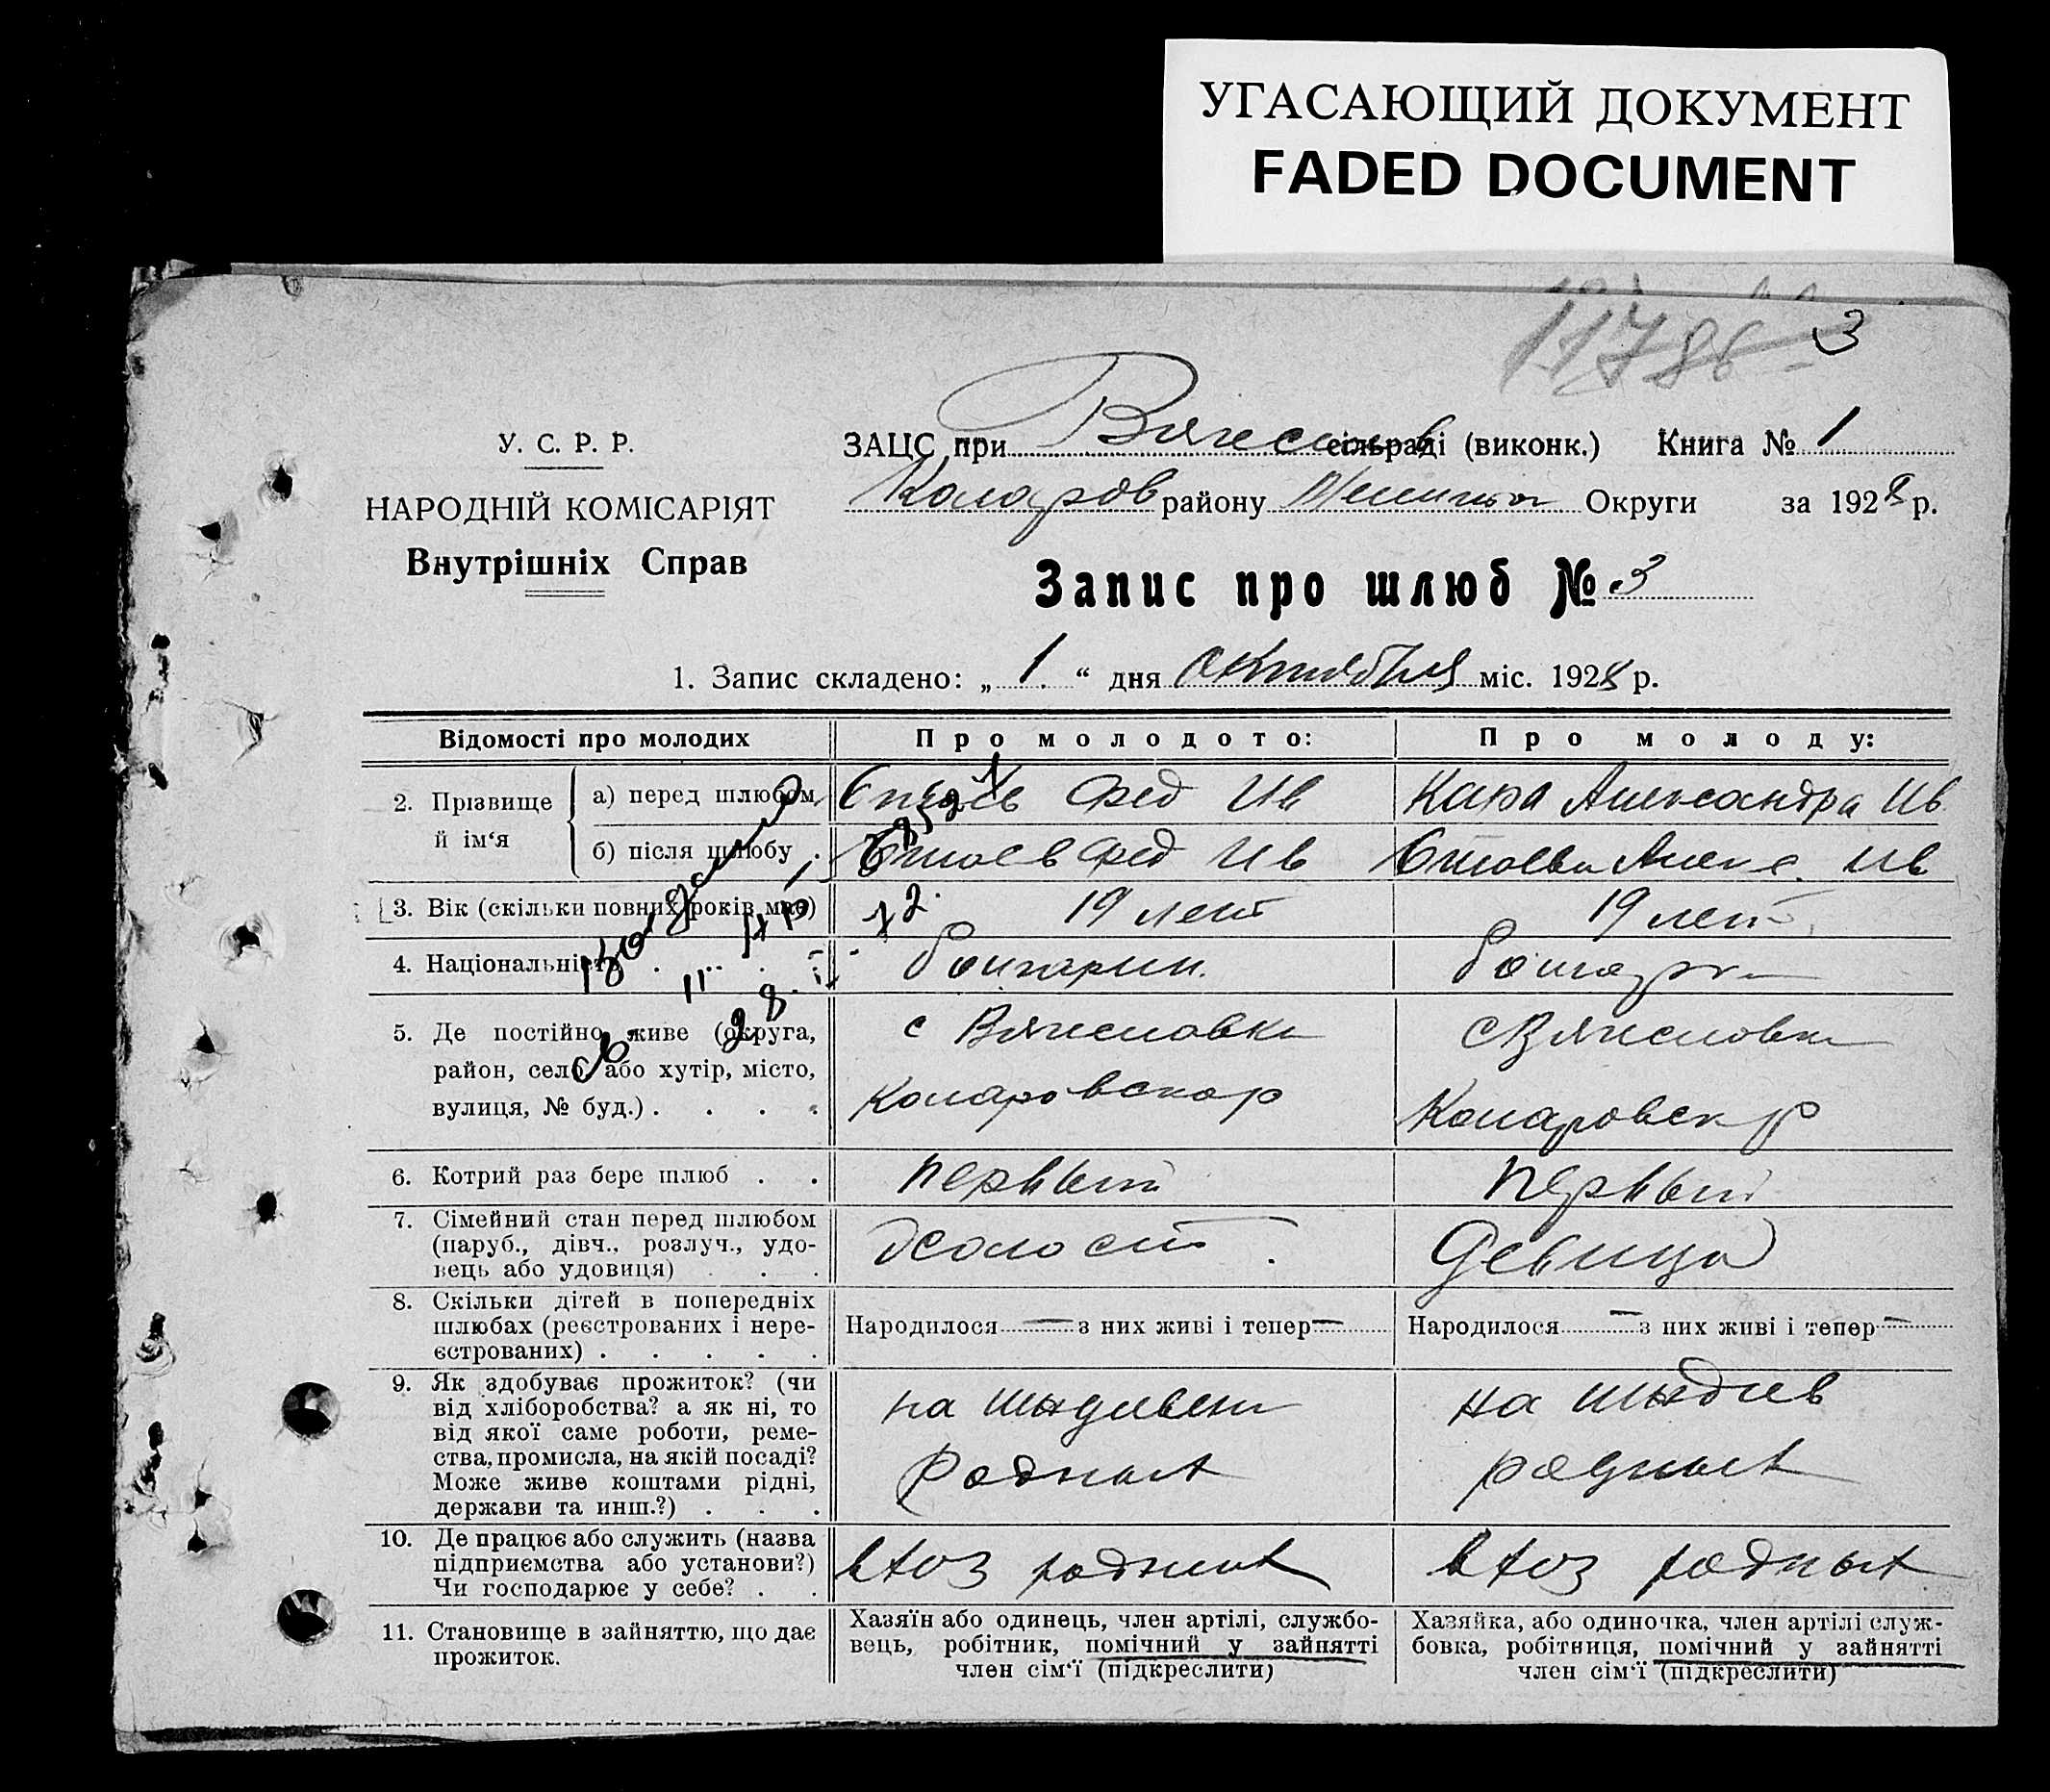 УГАСАЮЩИЙ ДОКУМЕНТ
FADED DOCUMENT
3
У. С. Р. Р.
НАРОДНІЙ КОМІСАРІЯТ
Внутрішніх Справ
ЗАЦС при Вячеслав сільраді (виконк.) Книга № 1
Коларов району Округи за 1928 р.
Запис про шлюб № 3
1. Запис складено: „ 1. “ дня Октября міс. 1928 р.
Відомості про молодих
Про молодого:
Про молоду:
2. Прізвище й ім‘я
а) перед шлюбом
Стоев Фед Ив
Кара Александра Ив
б) після шлюбу .
Стоев Фед Ив
Стоева Алекс. Ив
3. Вік (скільки повних років має)
19 лет
19 лет
4. Національність . . . .
болгарин.
болгарка
5. Де постійно живе (округа,
район, село або хутір, місто,
вулиця, № буд.) . . . .
с Вячеславка
Коларовског р
с Вячеславка
Коларовск р
6. Котрий раз бере шлюб . .
первый
первый
7. Сімейний стан перед шлюбом
(паруб., дівч., розлуч., удо-
вець або удовиця) . . .
холост .
девица
8. Скільки дітей в попередніх
шлюбах (реєстрованих і нере-
єстрованих) . . . . .
Народилося — з них живі і тепер —
Народилося — з них живі і тепер —
9. Як здобуває прожиток? (чи
від хліборобства? а як ні, то
від якої саме роботи, реме-
ства, промисла, на якій посаді?
Може живе коштами рідні,
держави та инш.?) . . .
на иждивен
Родных
на иждив
родных
10. Де працює або служить (назва
підприємства або установи?)
Чи господарює у себе? . .
в хоз родных
в хоз родных
11. Становище в зайняттю, що дає
прожиток.
Хазяїн або одинець, член артілі, службо-
вець, робітник, помічний у зайнятті
член сім‘ї (підкреслити)
Хазяйка, або одиночка, член артілі служ-
бовка, робітниця, помічний у зайнятті
член сім‘ї (підкреслити)